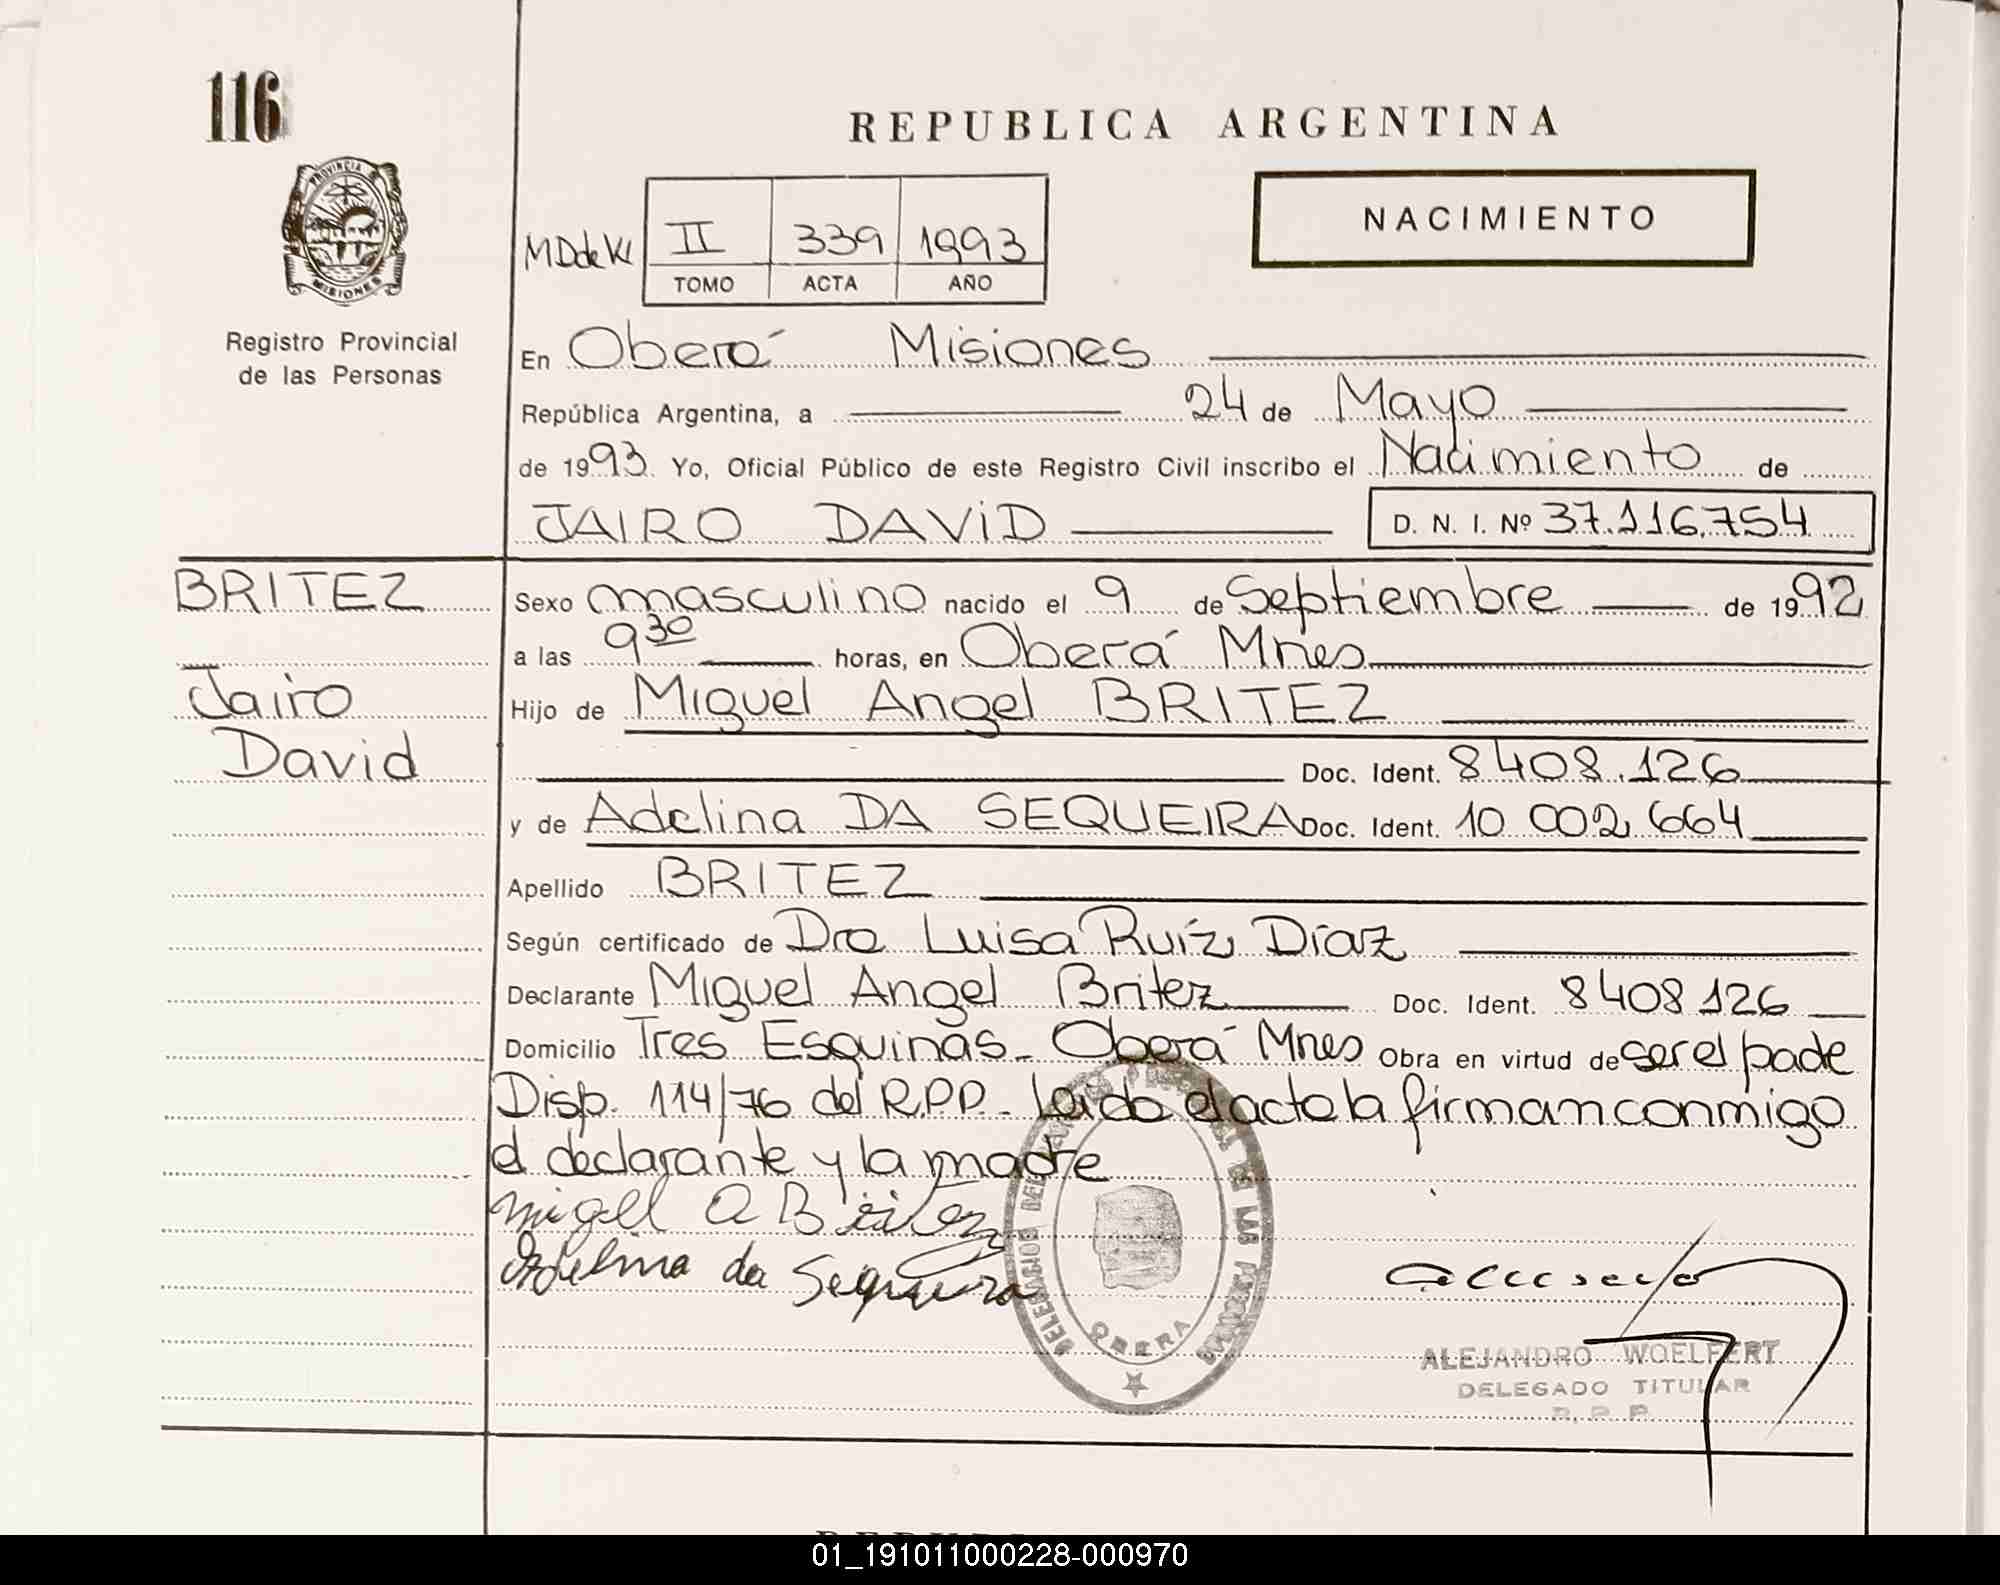 116
REPUBLICA ARGENTINA
PROVINCIA
MISIONES
Registro Provincial
de las Personas
NACIMIENTO
MDdeK II 339 1993
TOMO ACTA AÑO
En Oberá Misiones
República Argentina, a 24 de Mayo
de 1993. Yo, Oficial Público de este Registro Civil inscribo el Nacimiento de
JAIRO DAVID D. N. I. Nº 37.116.754
BRITEZ
Jairo
David
Sexo masculino nacido el 9 de Septiembre de 1992
a las 9 30 horas, en Oberá Mnes
Hijo de Miguel Angel BRITEZ
Doc. Ident. 8408.126
y de Adelina DA SEQUEIRA Doc. Ident. 10 002.664
Apellido BRITEZ
Según certificado de Dra Luisa Ruíz Díaz
Declarante Miguel Angel Britez Doc. Ident. 8408126
Domicilio Tres Esquinas - Oberá Mnes Obra en virtud de ser el pade
Disp. 114/76 del R.P.P. - Leido el acta la firman conmigo
el declarante y la madre
Migel A Britez
Adelina da Sequeira
OBERA
ALEJANDRO WOELFERT
DELEGADO TITULAR
R. P. P.
01_191011000228-000970